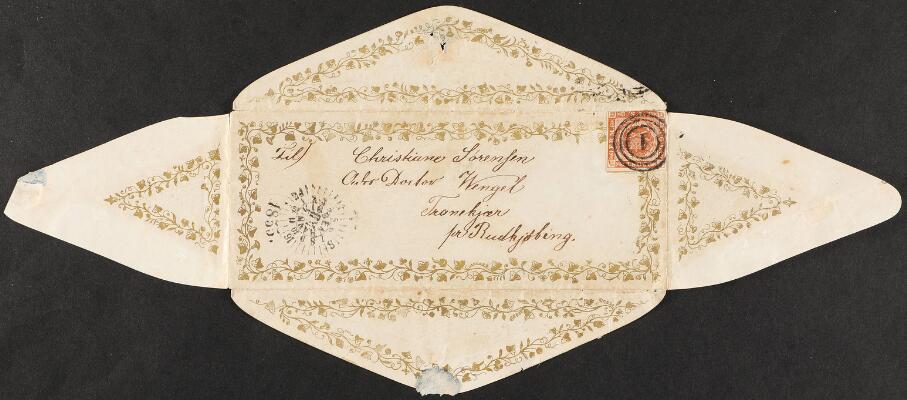 Til)
Christiane Sørensen
Adr: Doctor Wengel
Tranekjær
pr Rudkjøbing.
1